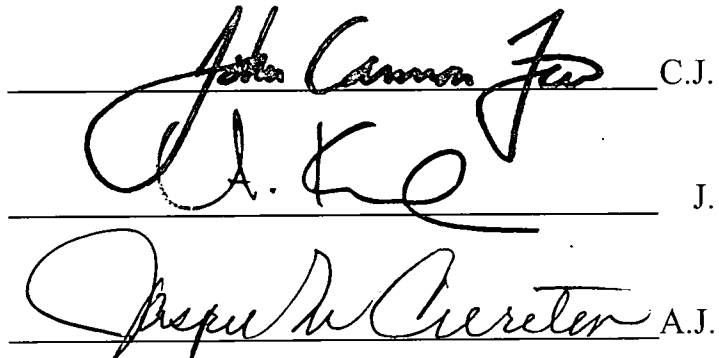 John Cannon Few C.J.
A. K J.
Jasper M. Cureton A.J.